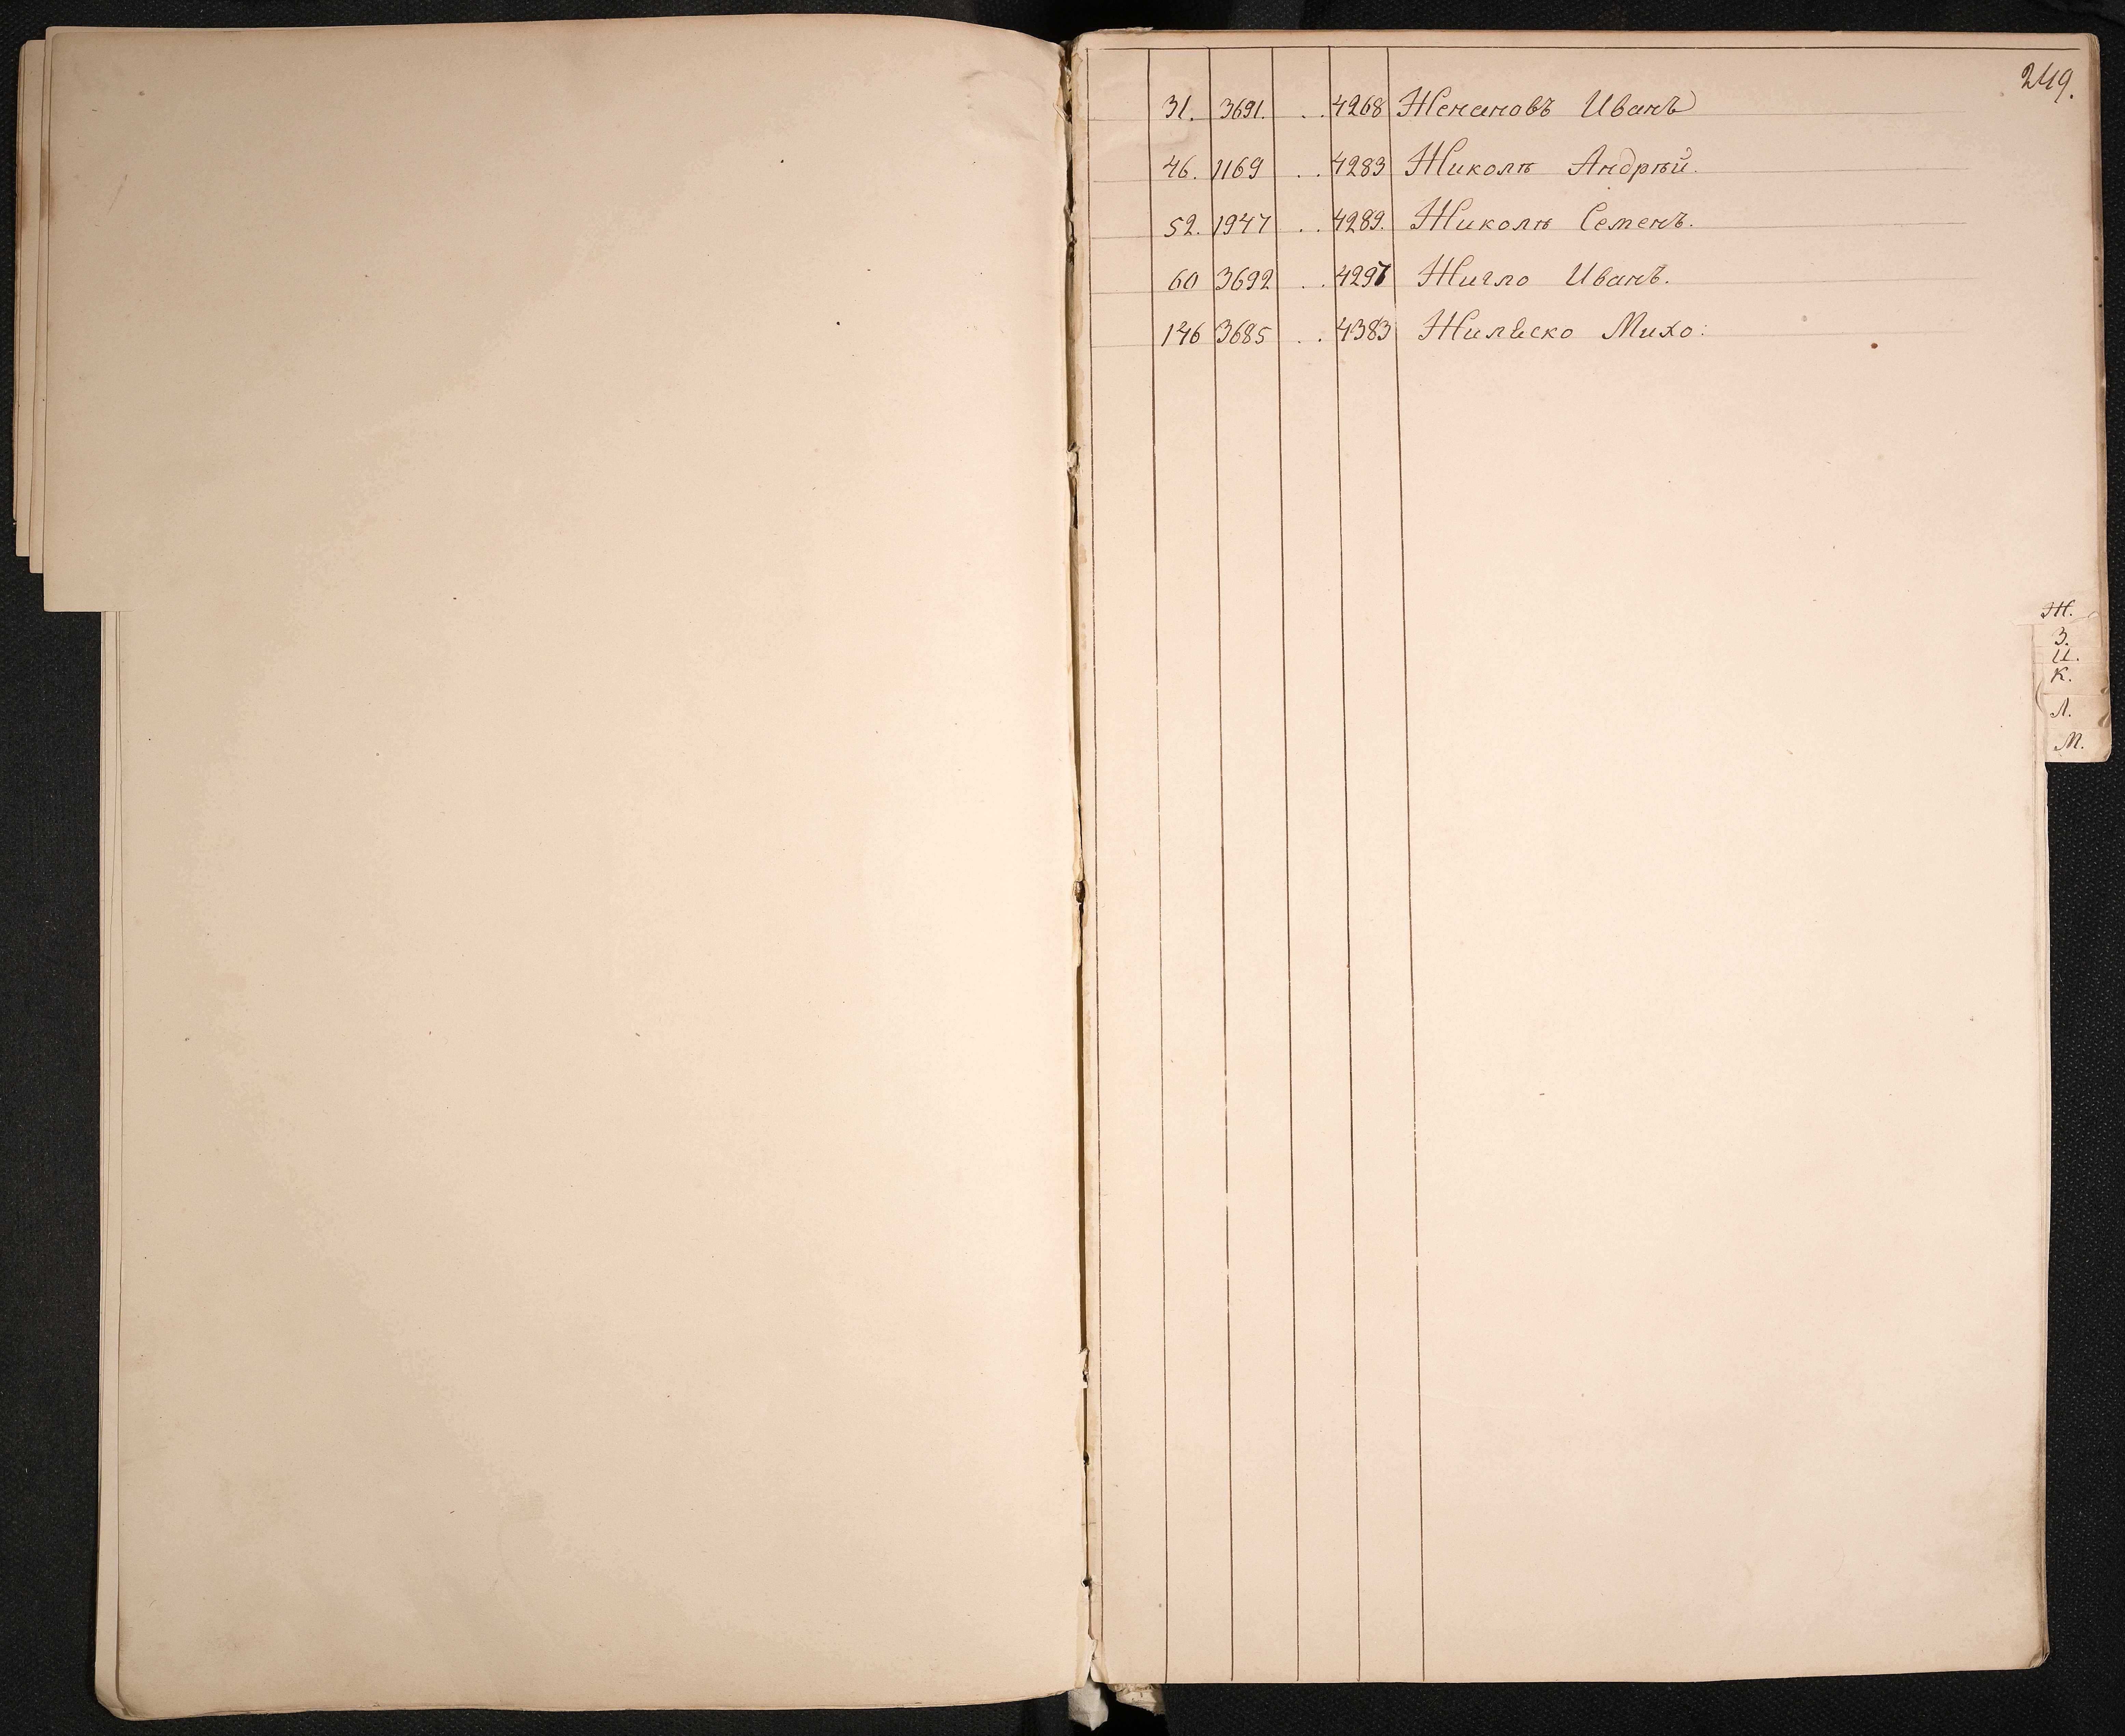 249.
31. 3691. . . 4268 Женановъ Иванъ
46. 1169 . . 4283 Жиколѣ Андрѣй.
52. 1947 . . 4289. Жиколѣ Семенъ.
60 3692 . . 4297 Жигло Иванъ.
146 3685 . . 4383 Михо:
Ж.
З.
И.
К.
Л.
М.